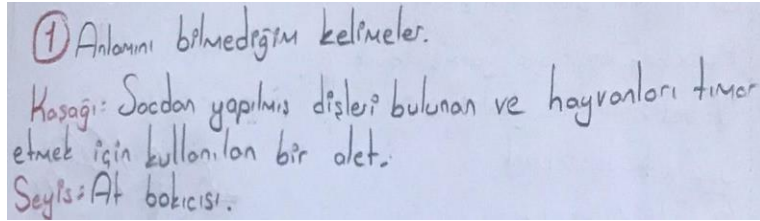 1 Anlamını bilmediğim kelimeler.
Kaşağı: Sacdan yapılmış dişleri bulunan ve hayvanları tımar
etmek için kullanılan bir alet.
Seyis: At bakıcısı.